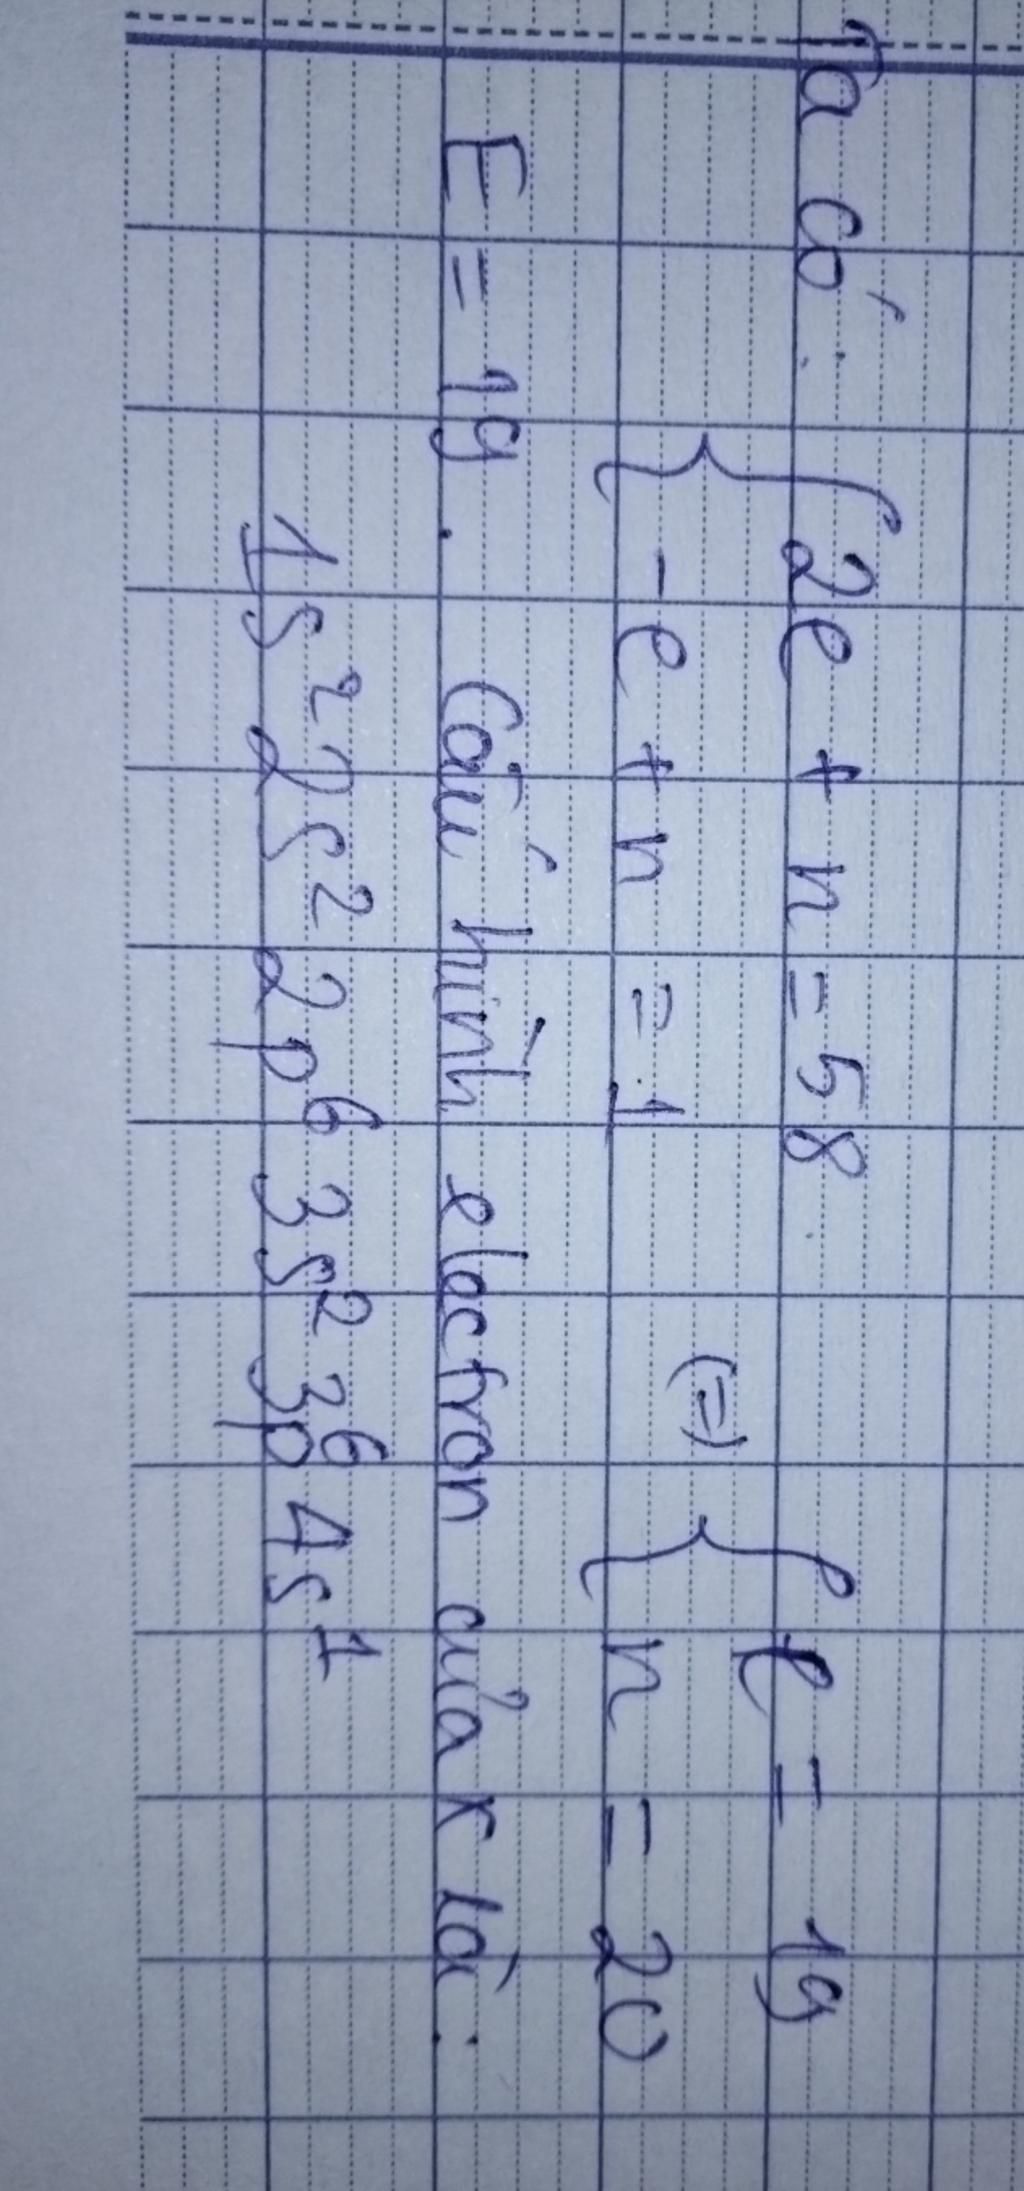 Ta có: { 2e + n = 58 (=) { e = 19
- e + n = 1 n = 20
E = 19. Cấu hình electron của x là:
1s² 2s² 2p⁶ 3s² 3p⁶ 4s¹